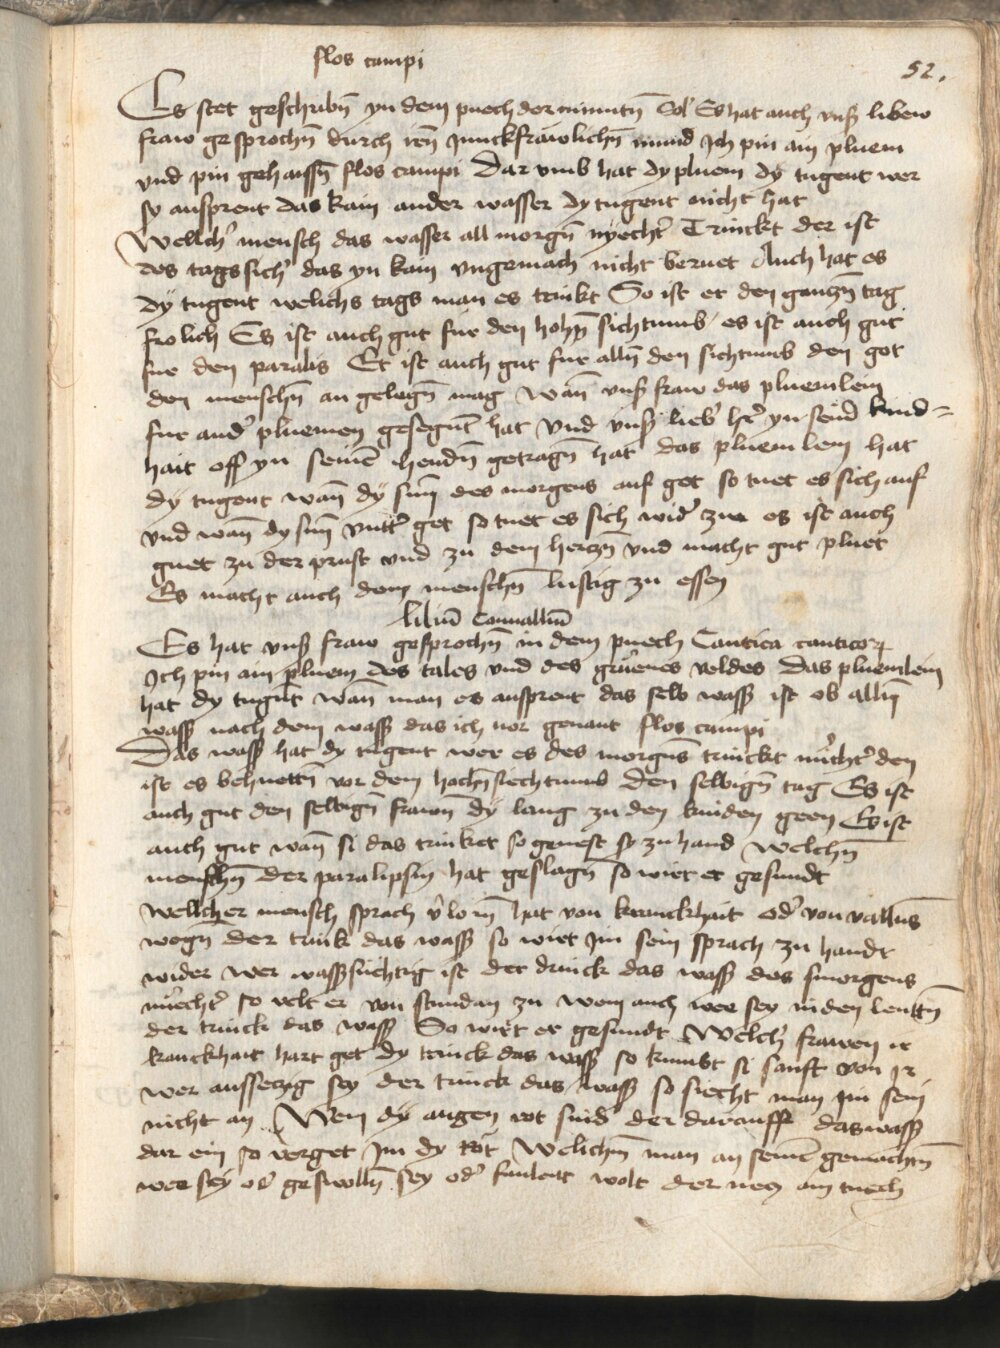 flos campi
52.
Es stet geschribn̄ yn dem puech der minnitn̄ Sol Es hat auch vnß libew
fraw gesprochn̄ durch irn̄ Junckfrawlichn̄ mund Ich pin ain pluem
vnd pin gehaissn̄ flos campi Dar vmb hat dy pluem dy tugent wer
sy ausprent das kain ander wasser dy tugent nicht hat
Wellichˀ mensch das wasser all morgn̄ nyechtˀ Trinckt der ist
des tags sichˀ das yn kain vngemach nicht beruet Auch hat es
dy tugent welichs tags man es trinkt So ist er den gantzn̄ tag
frolich Es ist auch gut fur den hohn̄ sichtumb es ist auch gut
fur den paralis Er ist auch gut fur alln̄ den sichtumb den got
den menschn̄ an gelegn̄ mag Wan̄ vnß fraw das pluemlein
fur andˀ pluemen gesegnet hat Vnd vnß liebˀ hˀr yn seinˀ kind=
hait off yn seinē hendn̄ getragn̄ hat das pluemlein hat
dy tugent wan̄ dy sun̄ des morgens auf get so tuet es sich auf
vnd wan̄ dy sun̄ vntˀ get so tuet es sich widˀ zue es ist auch
guet zu der prust vnd zu dem hertzn̄ vnd macht gut pluet
Es macht auch dem menschn̄ lustig zu essen
liliū Conualliū
Es hat vnß fraw gesprochn̄ in dem puech Cantica canticoꝝ
Ich pin ain pluem des tales vnd des gruenes veldes Das pluemlein
hat dy tugut wan̄ man es ausprent das selb wasß ist ob alln̄
wasß nach dem wasß das ich vor genant flos campi
Das wasß hat dy tugent wer es des morgens trinckt nüchtˀ den
ist es behuettn̄ vor dem hochn̄ siechtumb Den selbign̄ tag Es ist
auch gut den selbign̄ frawn̄ dy lang zu den kinden geen Es ist
auch gut wan̄ si das trinket so genest sy zu hand Welchn̄
menschn̄ der paralipsin hat geslagn̄ so wirt er gesundt
Wellicher mensch sprach vˀlorn̄ hat von kranckhait odˀ von vallens
wegn̄ Der trink das wasß so wirt Im sein sprach zu handt
wider Wer wasßsüchtig ist der drinck das wasß des smorgens
nüechtˀ so velt er von stundan zu Wem auch wee sey in den leuttn̄
der trinck das wasß So wirt er gesundt Welchˀ frawen ir
kranckhait hart get dy trinck das wasß so kumbt si sanft von Ir
Wer aussetzig sey der trinck das wasß so siecht man Im sein
nicht an Wem dy augen rot sind der darauff das wasß
dar ein so verget Im dy röt Welichm̄ man an seinē gemächn̄
wee sey odˀ geswolln̄ sey odˀ faulent wolt der necz ain tuech